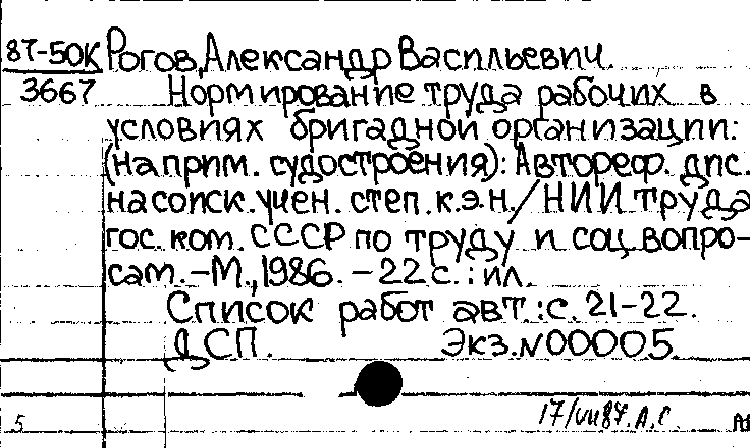 87-50К Рогов, Александр Васильевич.
3667 Нормирование труда рабочих в
условиях бригадной организации:
(на прим. судостроения): Автореф. дис.
на соиск. учен. степ. к.э.н. / НИИ труда
гос. ком. СССР по труду и соц. вопро-
сам. – М., 1986. – 22 с. : ил.
Список работ авт.: с. 21-22.
ДСП. Экз. N00005.
17/VII 87. А.С.
5